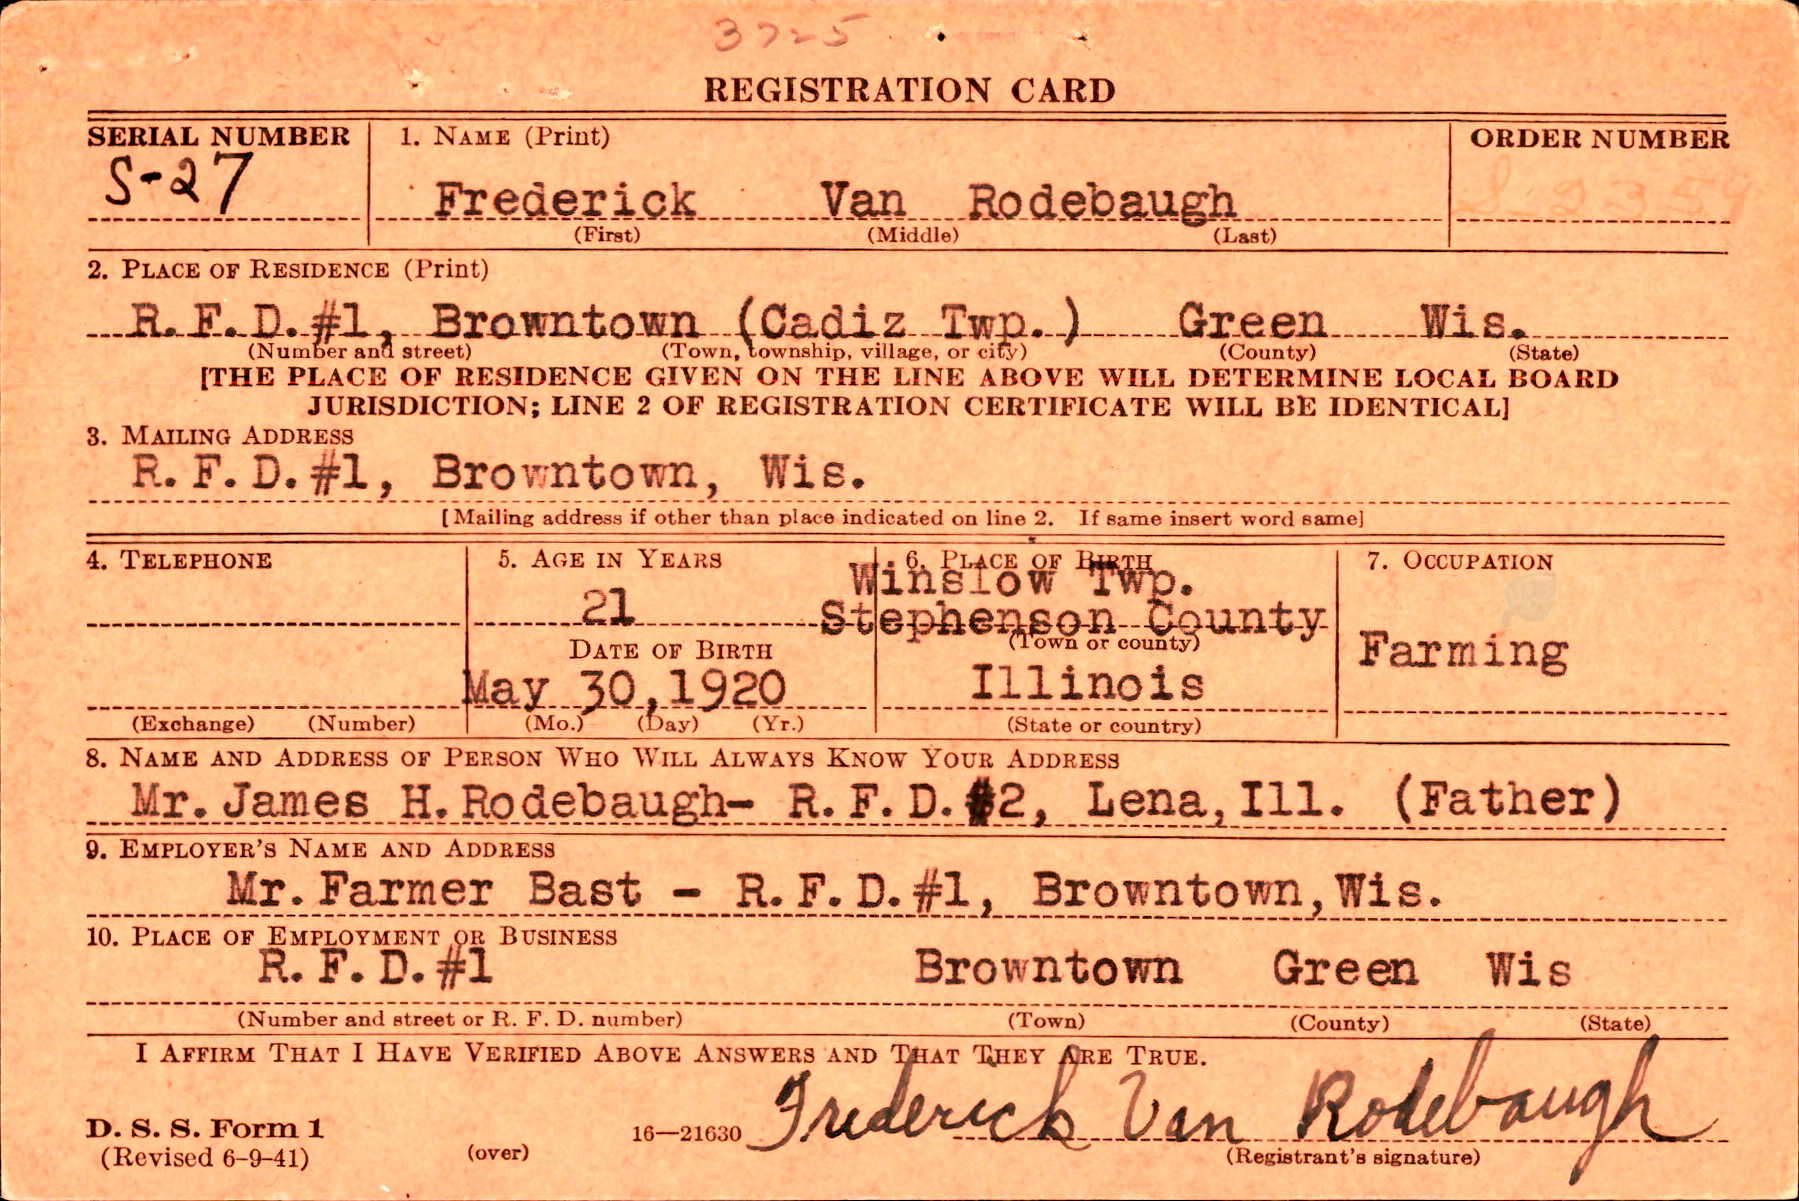 3725
REGISTRATION CARD
SERIAL NUMBER
S-27
1. NAME (Print)
Frederick Van Rodebaugh
(First) (Middle) (Last)
ORDER NUMBER
2. PLACE OF RESIDENCE (Print)
R.F.D.#1, Browntown (Cadiz Twp.) Green Wis.
(Number and street) (Town, township, village, or city) (County) (State)
[THE PLACE OF RESIDENCE GIVEN ON THE LINE ABOVE WILL DETERMINE LOCAL BOARD
JURISDICTION; LINE 2 OF REGISTRATION CERTIFICATE WILL BE IDENTICAL]
3. MAILING ADDRESS
R.F.D.#1, Browntown, Wis.
[Mailing address if other than place indicated on line 2. If same insert word same]
4. TELEPHONE
(Exchange) (Number)
5. AGE IN YEARS
21
DATE OF BIRTH
May 30,1920
(Mo.) (Day) (Yr.)
6. PLACE OF BIRTH
Winslow Twp.
Stephenson County
(Town or county)
Illinois
(State or country)
7. OCCUPATION
Farming
8. NAME AND ADDRESS OF PERSON WHO WILL ALWAYS KNOW YOUR ADDRESS
Mr. James H. Rodebaugh- R.F.D.#2, Lena, Ill. (Father)
9. EMPLOYER'S NAME AND ADDRESS
Mr. Farmer Bast - R.F.D.#1, Browntown, Wis.
10. PLACE OF EMPLOYMENT OR BUSINESS
R.F.D.#1 Browntown Green Wis
(Number and street or R. F. D. number) (Town) (County) (State)
I AFFIRM THAT I HAVE VERIFIED ABOVE ANSWERS AND THAT THEY ARE TRUE.
Frederick Van Rodebaugh
(Registrant's signature)
D. S. S. Form 1
(Revised 6-9-41)
(over)
16—21630